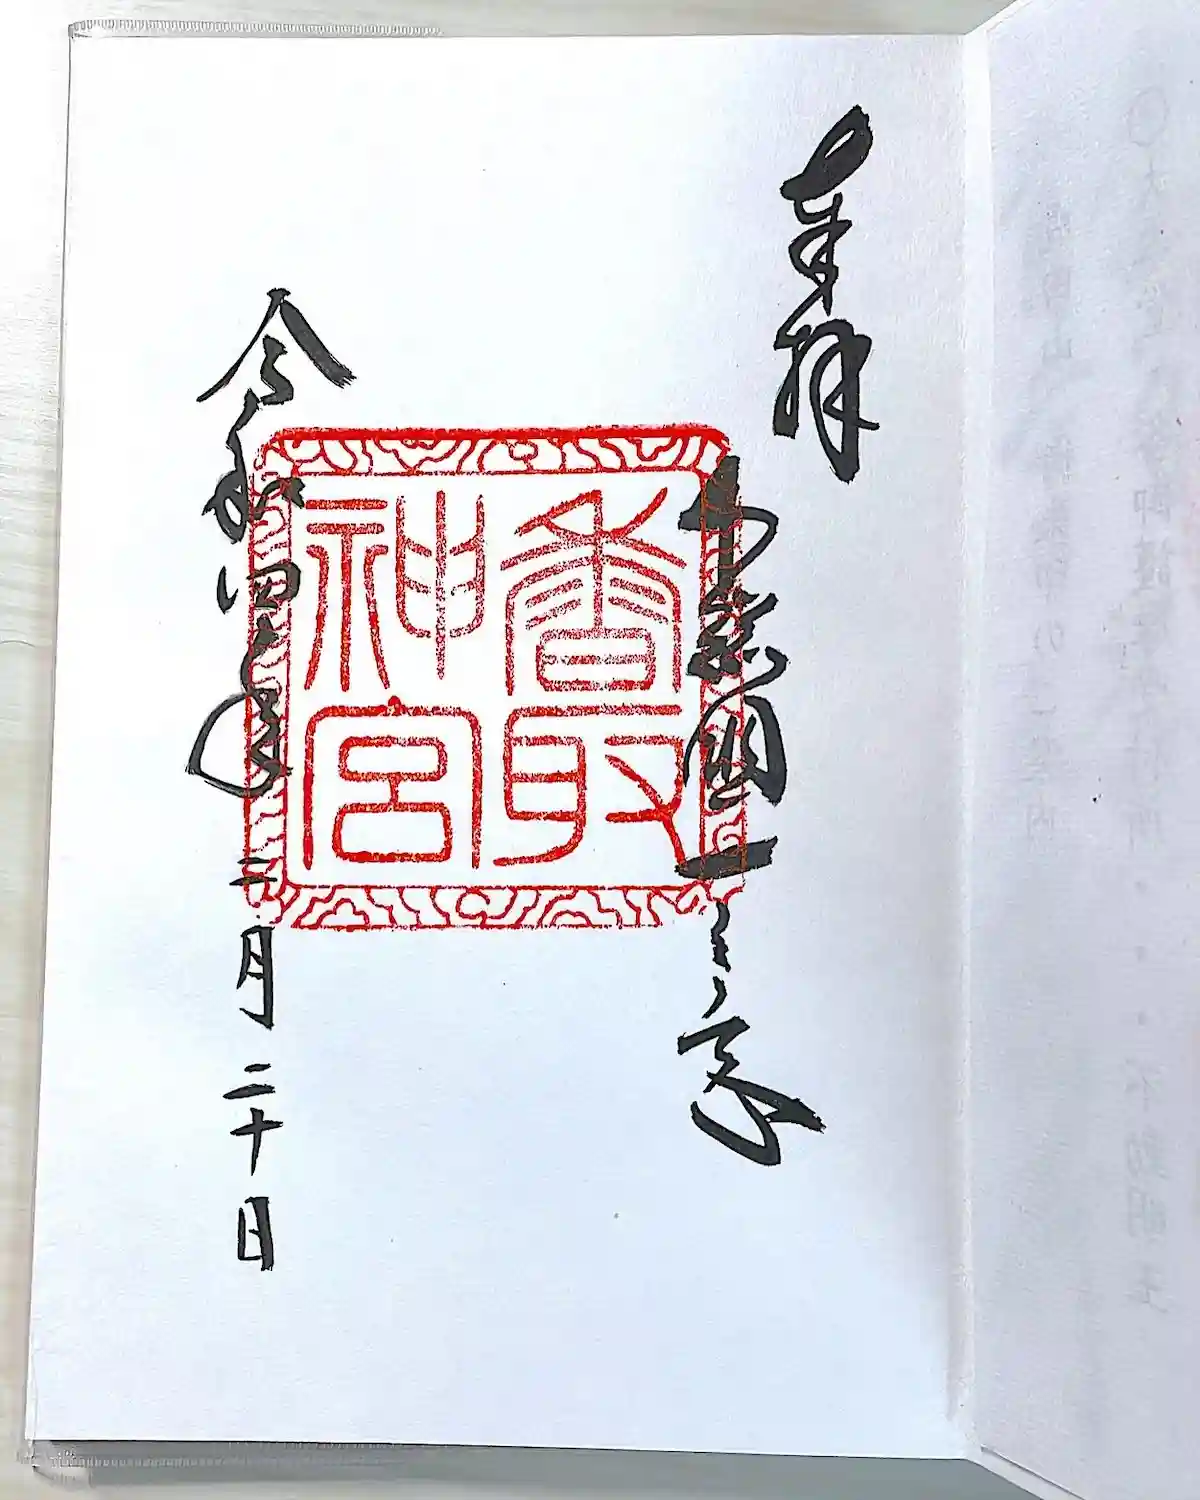 奉拝
下総國一之宮
香取
神宮
令和四年二月二十日